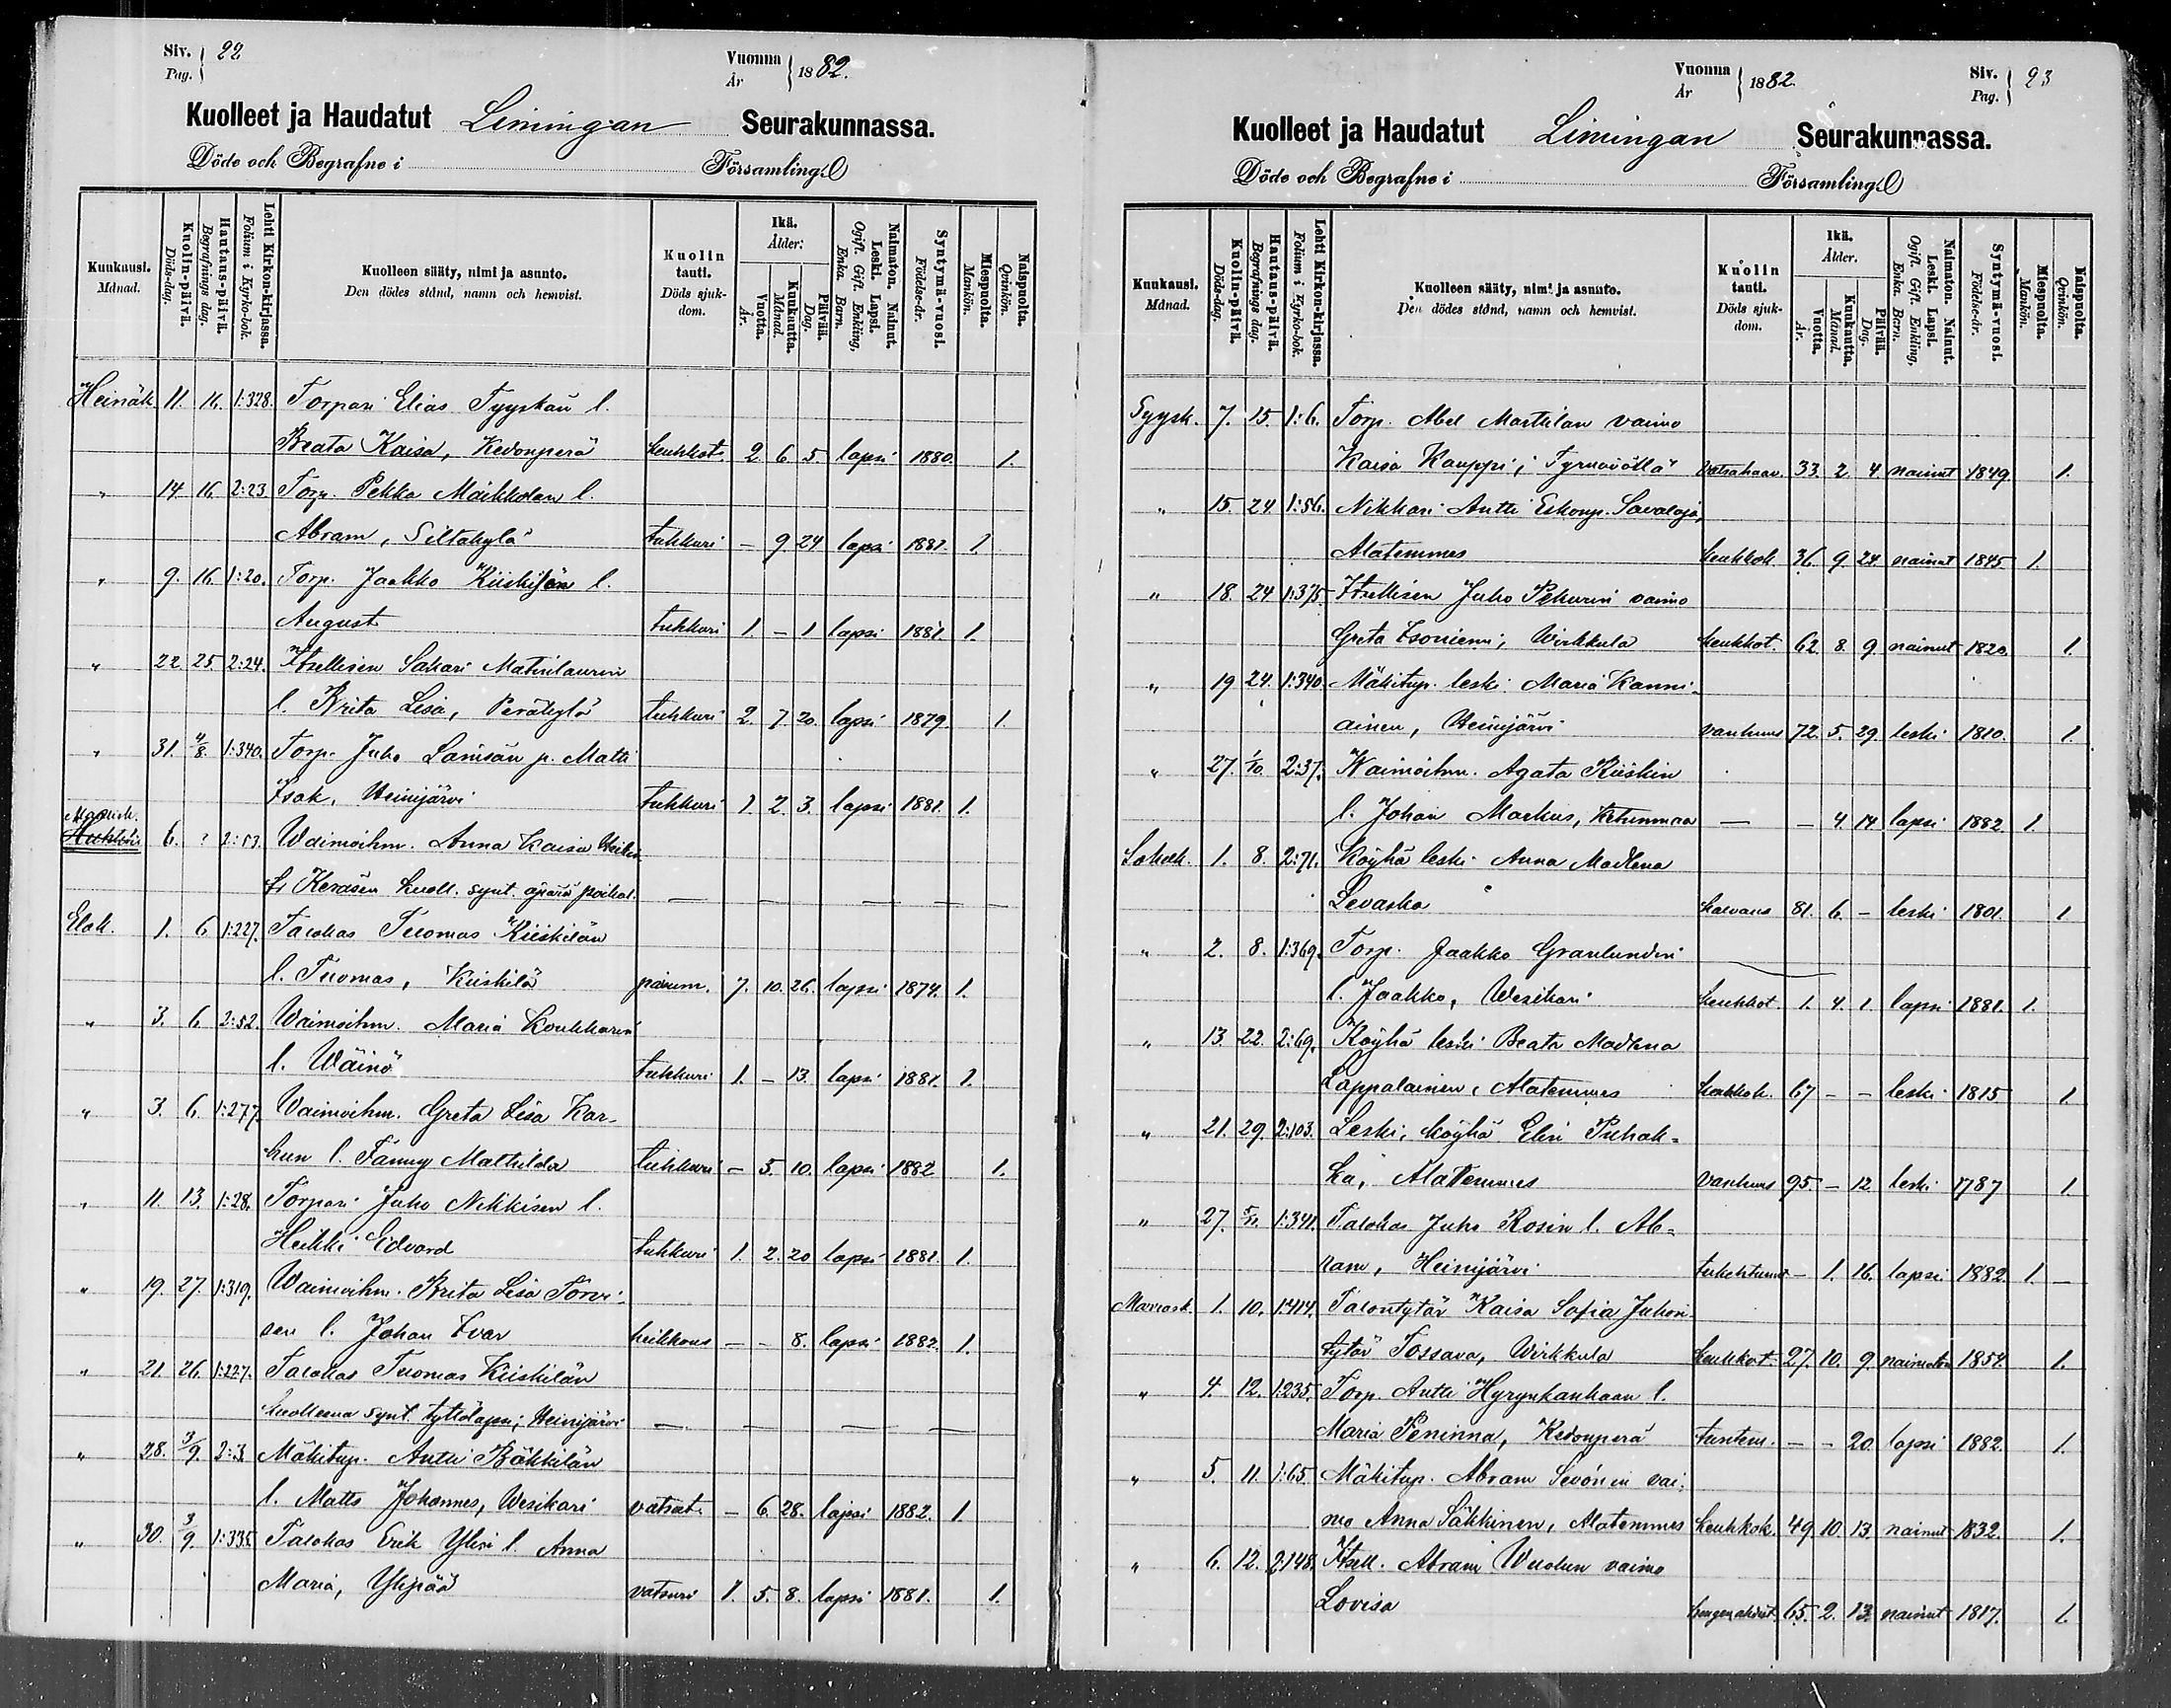 Siv. 22
Pag.
Vuonna
År
1882.
Kuolleet ja Haudatut Limingan Seurakunnassa.
Döde och Begrafne i Församling.
Kuukausi. Månad.
Kuolin-päivä. Döds-dag.
Hautaus-päivä. Begrafnings dag.
Lehti Kirkon-kirjassa. Folium i Kyrko-bok.
Kuolleen sääty, nimi ja asunto.
Den dödes stånd, namn och hemvist.
Kuolin tauti. Döds sjuk-dom.
Ikä. Ålder:
Vuotta. År.
Kuukautta. Månad.
Päivää. Dag.
Naimaton. Nainut. Leski. Lapsi. Ogift. Gift. Enkling, Enka. Barn.
Syntymä-vuosi. Födelse-år.
Miespuolta. Mankön.
Naispuolta. Qvinkön.
Heinäk. 11. 16. 1:328. Torpari Elias Tyyskän l.
Beata Kaisa, Kedonperä keuhkot. 2. 6. 5. lapsi 1880. 1.
" 14. 16. 2:23. Torp. Pekka Máikkolan l.
Abram, Siltakylä tuhkuri — 9 24 lapsi 1881. 1.
" 9. 16. 1:20. Torp. Jaakko Kiiskilän l.
August tuhkuri 1 — 1 lapsi 1881. 1.
" 22 25. 2:24. Itsellisen Sakari Matinlaurin
l. Brita Lisa, Peräkylä tuhkuri 2. 7. 20. lapsi 1879. 1.
" 31. 4/8. 1:340. Torp. Juho Lanisän p. Matti
Isak, Heinijärvi tuhkuri 1. 2. 3. lapsi 1881. 1.
Maalisk.
Huhtik. 6. ? 2:53. Waimoihm. Anna Kaisa
Keräsen kuoll. synt. äpärä poikal. — — — —
Elok. 1. 6 1:227. Talokas Tuomas Kiiskilän
l. Tuomas, Kiiskilä pärum. 7. 10. 26. lapsi 1874. 1.
" 3. 6 2:52. Waimoihm. Maria Koukkarin
l. Wäinö tuhkuri 1. — 13. lapsi 1881. 1.
" 3. 6. 1:277. Waimoihm. Greta Lisa Kar-
hun l. Fanny Mathilda tuhkuri — 5. 10. lapsi 1882 1.
" 11. 13. 1:28. Torpari Juho Nikkisen l.
Heikki Edvard tuhkuri 1. 2. 20 lapsi 1881. 1.
" 19. 27. 1:319. Waimoihm. Brita Lisa Torvi-
sen l. Johan Ivar heikkous — — 8. lapsi 1882. 1.
" 21. 26. 1:227. Talokas Tuomas Kiiskilän
kuolleena synt. tyttölapsi; Heinijärvi — — — —
" 28. 3/9. 2:3. Mäkitup. Antti Bäkkilän
l. Matts Johannes, Wesikari vatsat. — 6. 28. lapsi 1882. 1
" 30. 3/9. 1:335. Talokas Erik Ylisi l. Anna
Maria, Ylipää vatsuri 1. 5. 8. lapsi 1881. 1.
Vuonna
År
1882.
Siv. 23
Pag.
Kuolleet ja Haudatut Limingan Seurakunnassa.
Döde och Begrafne i Församling.
Kuukausi. Månad.
Kuolin-päivä. Döds-dag.
Hautaus-päivä. Begrafnings dag.
Lehti Kirkon-kirjassa. Folium i Kyrko-bok.
Kuolleen sääty, nimi ja asunto.
Den dödes stånd, namn och hemvist.
Kuolin tauti. Döds sjuk-dom.
Ikä. Ålder.
Vuotta. År.
Kuukautta. Månad.
Päivää. Dag.
Naimaton. Nainut. Leski. Lapsi. Ogift. Gift. Enkling, Enka. Barn.
Syntymä-vuosi. Födelse-år.
Miespuolta. Mankön.
Naispuolta. Qvinkön.
Syysk. 7. 15. 1:6. Torp. Abel Marttilan vaimo
Kaisa Kauppi; Tyrnävällä vatsahaav. 33. 2. 4. nainut 1849. 1.
" 15. 24. 1:56. Nikkari Antti Eskonp. Savaloja,
Alatemmes keuhkok. 36. 9. 24 nainut 1845 1.
" 18. 24 1:375. Itsellisen Juho Pekurin vaimo
Greta Isoniemi, Wirkkula keuhkot. 62. 8. 9. nainut 1820. 1.
" 19 24. 1:340. Mäkitup. leski Maria Kanni-
ainen, Heinijärvi vanhuus 72. 5. 29. leski 1810. 1.
" 27. 1/10. 2:37. Waimoihm. Agata Kiiskin
l. Johan Markus, Ketunmaa — — 4. 14 lapsi 1882. 1.
Lokak. 1. 8. 2:71. Köyhä leski Anna Madlena
Levaska 81. 6. — leski 1801. 1
" 2. 8. 1:369. Torp. Jaakko Granlundin
l. Jaakko, Wesikari keuhkot. 1. 4. 1. lapsi 1881. 1.
" 13. 22. 2:69. Köyhä leski Beata Madlena
Lappalainen, Alatemmes keuhkok. 67 — — leski 1815 1.
" 21. 29. 2:103. Leski, köyhä Elin Puhak-
ka, Alatemmes vanhuus 95. — 12. leski 1787 1.
" 27. 5/11. 1:341. Talokas Juho Rosin l. Ab-
ram, Heinijärvi tukehtumis — 1. 16. lapsi 1882. 1. —
Marrask. 1. 10. 1:414. Talontytär Kaisa Sofia Juhon
tytär Tossava, Wirkkula keuhkot. 27. 10. 9. naimaton 1854. 1.
" 4. 12. 1:235. Torp. Antti Hyrynkankaan l.
Maria Peninna, Kedonperä tuntem. — — 20. lapsi 1882. 1.
" 5. 11. 1:65. Mäkitup. Abram Sevónin vai-
mo Anna Säkkinen, Alatemmes keuhkok. 49. 10. 13. nainut 1832. 1.
" 6. 12. 2:148. Itsell. Abram Wuolun vaimo
Lovisa hengenahdist. 65. 2. 13. nainut 1817. 1.